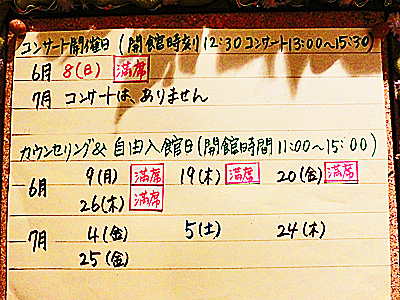 コンサート開催日(開館時刻12:30コンサート13:00~15:30)
6月 8(日) 満席
7月 コンサートは、ありません
カウンセリング&自由入館日(開館時間11:00~15:00)
6月 9(月) 満席 19(木) 満席 20(金) 満席
26(木) 満席
7月 4(金) 5(土) 24(木)
25(金)